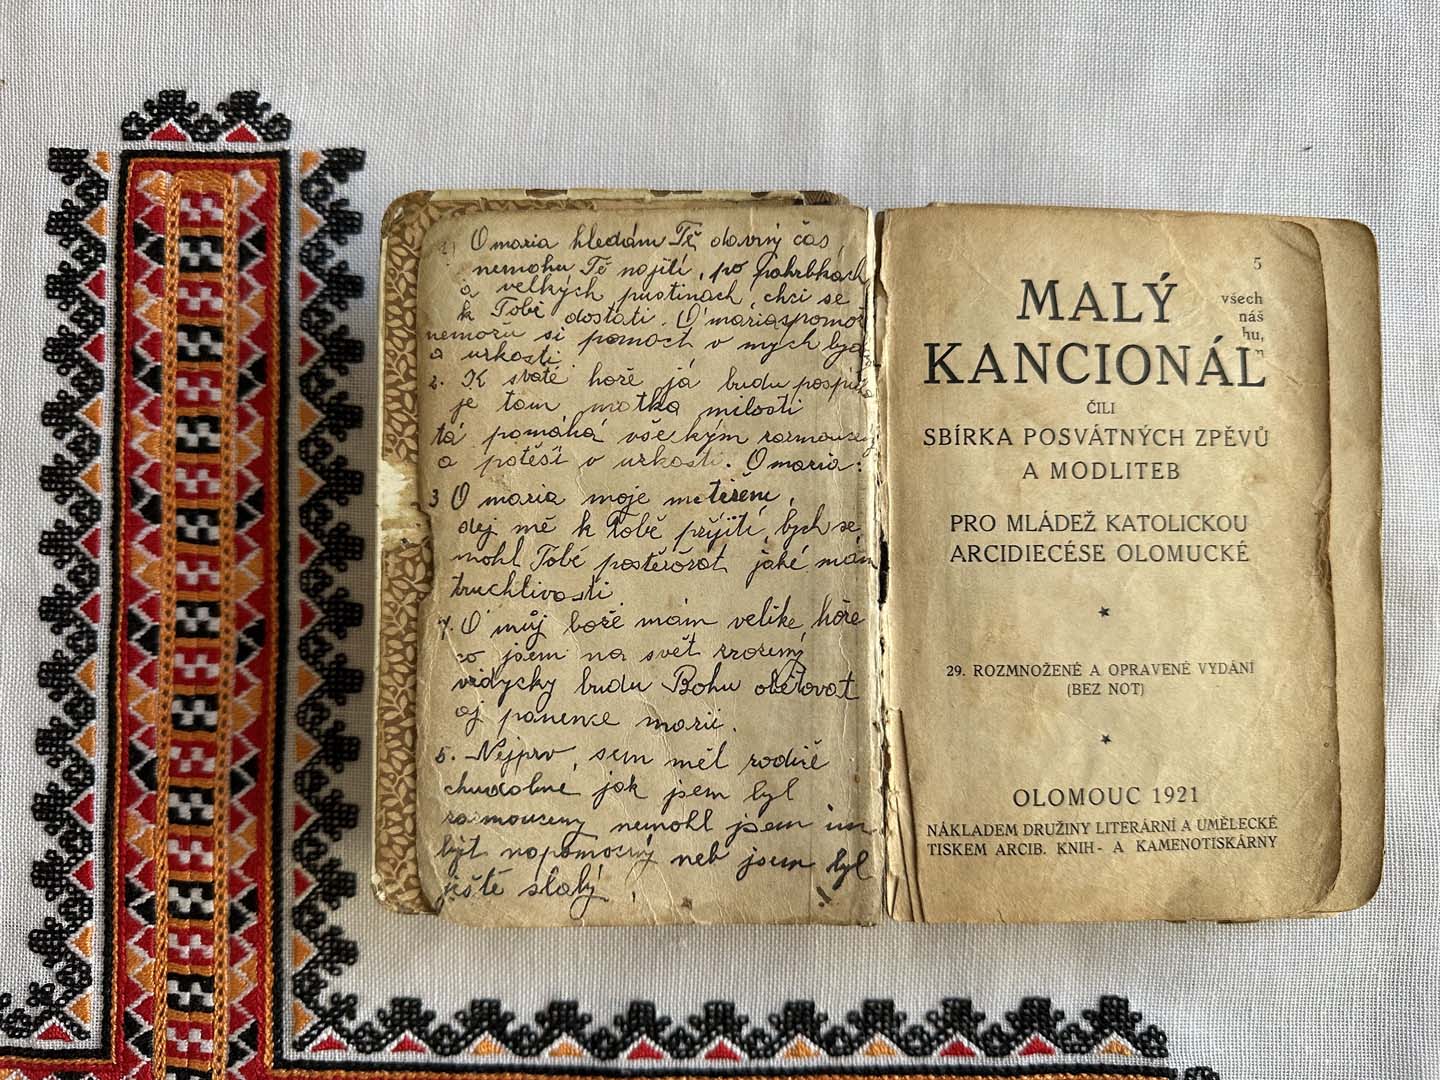 1) O maria hledám Tě davný čas,
nemohu Tě najíti, po pahrbkach
a velkých pustinach, chci se
k Tobě dostati. O' maria spomož
nemožu si pomoct v mych
a uzkosti
2. K svaté hoře já budu
je tam matka milosti
tá pomahá všeckým
a potěší v uzkosti. O maria:
3 O maria moje
dej mě k Tobě přijíti, bych se
mohl Tobě jaké mám
truchlivosti
4. O' můj bože mám velike hoře
co jsem na svět zrozený
vždycky budu Bohu obětovat
aj panence marii.
5. Nejprv, sem měl rodiče
chudobné jak jsem byl
nemohl jsem im
být napomocný neb jsem byl
ještě slabý,
5
všech
náš
hu,
MALÝ
KANCIONÁL
ČILI
SBÍRKA POSVÁTNÝCH ZPĚVŮ
A MODLITEB
PRO MLÁDEŽ KATOLICKOU
ARCIDIECÉSE OLOMUCKÉ
29. ROZMNOŽENÉ A OPRAVENÉ VYDÁNÍ
(BEZ NOT)
OLOMOUC 1921
NÁKLADEM DRUŽINY LITERÁRNÍ A UMĚLECKÉ
TISKEM ARCIB. KNIH- A KAMENOTISKÁRNY